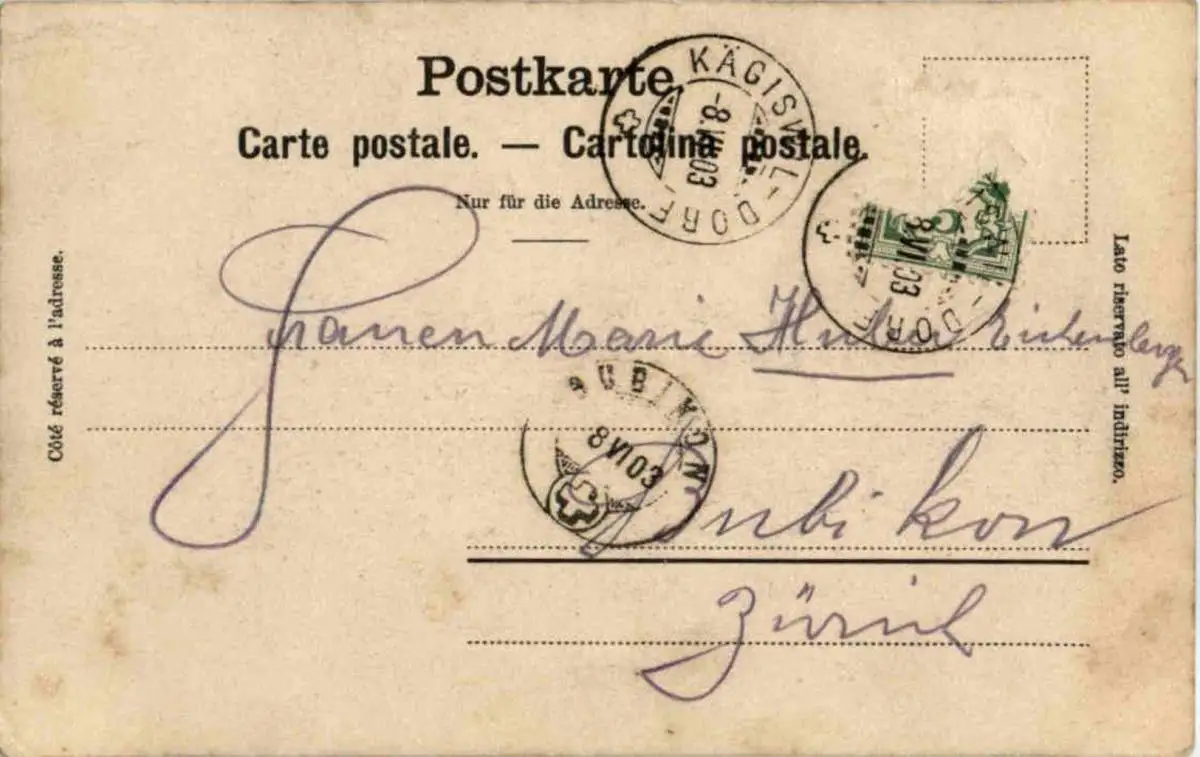 Postkarte.
Carte postale. — Cartolina postale.
Nur für die Adresse.
KÄGISWIL-DORF
-8.VI.03
5
-DORF
8.VI.03
Côté réservé à l'adresse.
Lato riservato all' indirizzo.
Marie Huber
BUBIKON
8 VI 03
Bubikon
Zürich